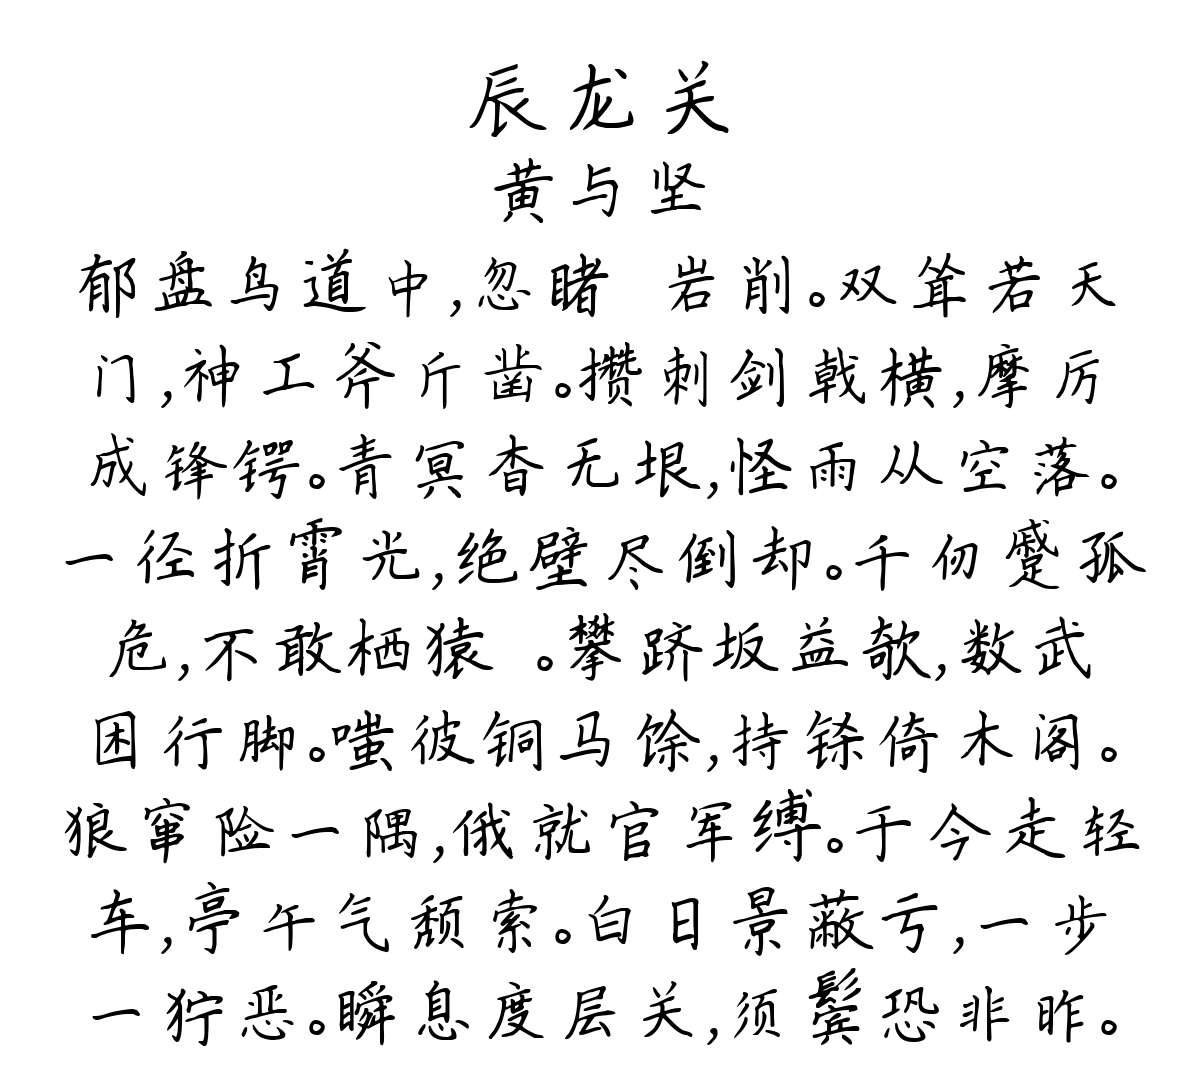 辰龙关
黄与坚
郁盘鸟道中,忽睹 岩削。双耸若天
门,神工斧斤凿。攒刺剑戟横,摩厉
成锋锷。青冥杳无垠,怪雨从空落。
一径折霄光,绝壁尽倒却。千仞蹙孤
危,不敢栖猿 。攀跻坂益欹,数武
困行脚。嗤彼铜马馀,持铩倚木阁。
狼窜险一隅,俄就官军缚。于今走轻
车,亭午气颓索。白日景蔽亏,一步
一狞恶。瞬息度层关,须鬓恐非昨。